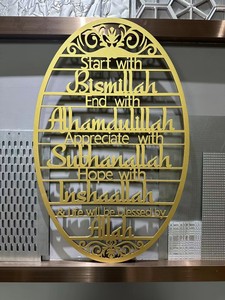 Start with
Bismillah
End with
Alhamdulillah
Appreciate with
Subhanallah
Hope with
Inshaallah
& Life will be blessed by
Allah